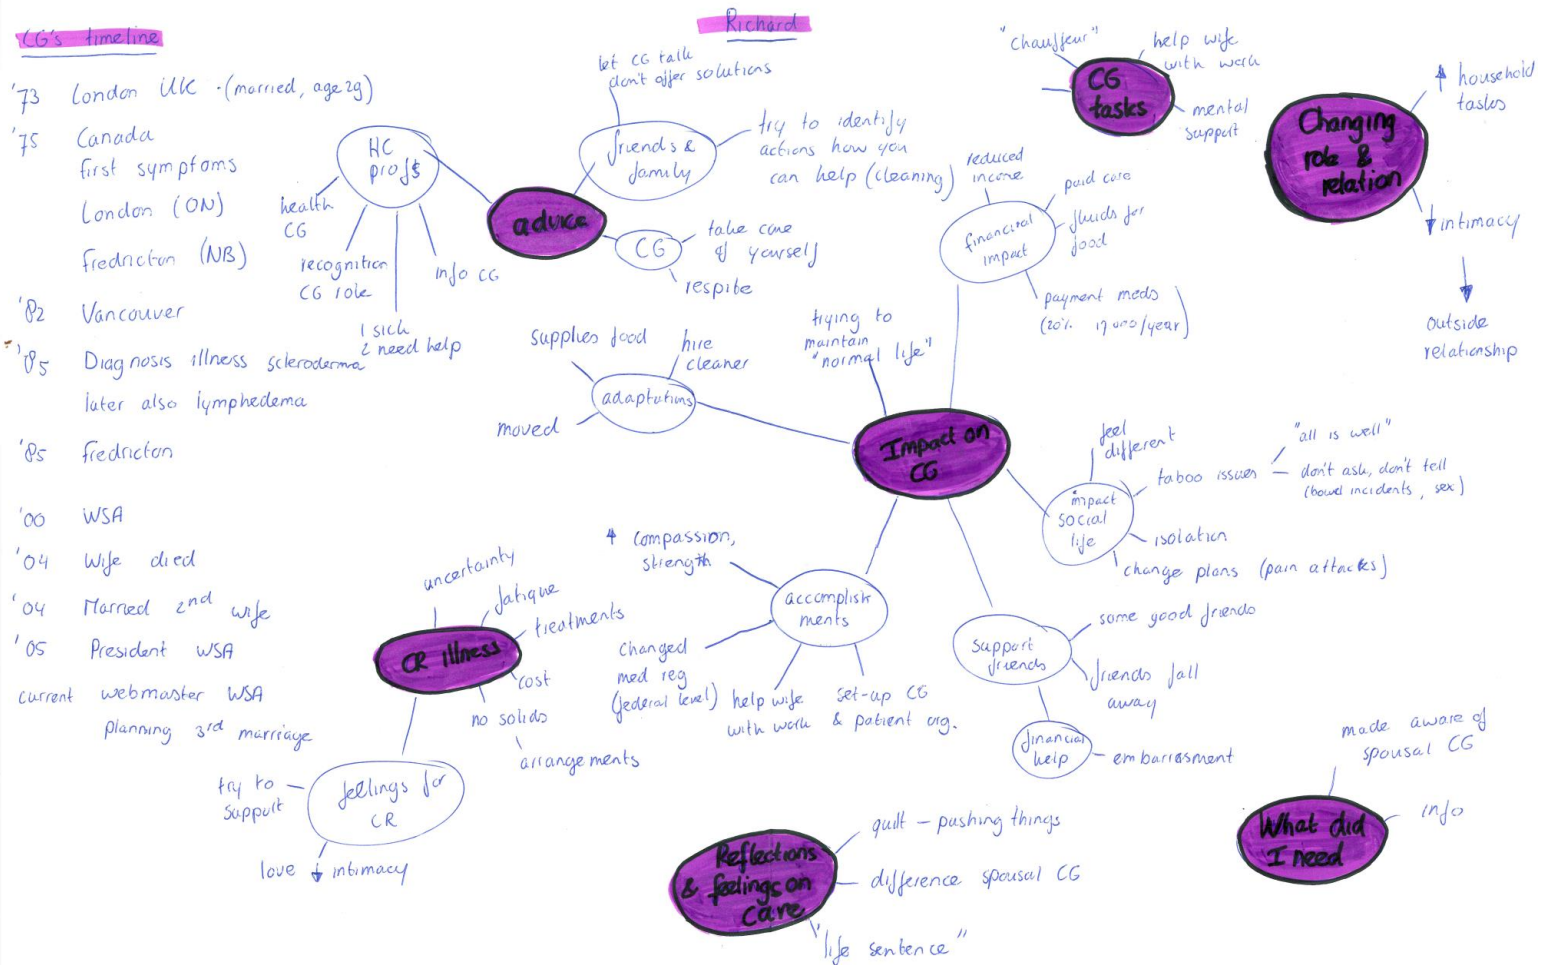 CG's timeline
'73 London UK - (married, age 29)
'75 Canada
first symptoms
London (ON)
Fredricton (NB)
'82 Vancouver
'85 Diagnosis illness scleroderma
later also lymphedema
'85 Fredricton
'00 WSA
'04 Wife died
'04 Married 2nd wife
'05 President WSA
current webmaster WSA
planning 3rd marriage
Richard
advice
HC
profs
health
CG
recognition
CG role
1 sick
2 need help
info CG
friends &
family
let CG talk
don't offer solutions
try to identify
actions how you
can help (cleaning)
CG
take care
of yourself
respite
CG
tasks
"chauffeur"
help wife
with work
mental
support
Changing
role &
relation
household
tasks
intimacy
outside
relationship
Impact on
CG
trying to
maintain
"normal life"
financial
impact
reduced
income
paid care
fluids for
food
payment meds
(20% 17000/year)
adaptations
supplies food
hire
cleaner
moved
impact
social
life
feel
different
taboo issues
"all is well"
don't ask, don't tell
(bowel incidents, sex)
isolation
change plans (pain attacks)
accomplish
ments
compassion,
strength
changed
med reg
(federal level)
help wife
with work
set-up CG
& patient org.
support
friends
some good friends
friends fall
away
financial
help
embarrasment
CR illness
uncertainty
fatique
treatments
cost
no solids
arrangements
feelings for
CR
try to
support
love
intimacy
Reflections
& feelings on
care
guilt - pushing things
difference spousal CG
"life sentence"
What did
I need
made aware of
spousal CG
info